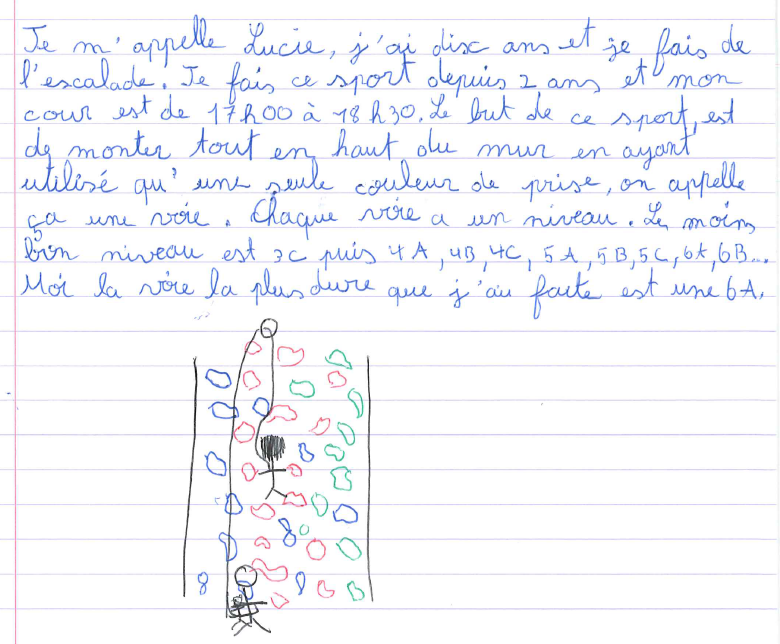 Je m'appelle Lucie, j'ai disc ans et je fais de
l'escalade. Je fais ce sport depuis 2 ans et mon
cour est de 17h00 à 18h30. Le but de ce sport, est
de monter tout en haut du mur en ayant
utilisé qu'une seule couleur de prise, on appelle
ça une voie. Chaque voie a un niveau. Le moins
bon niveau est 3C puis 4A, 4B, 4C, 5A, 5B, 5C, 6A, 6B...
Moi la voie la plus dure que j'ai faite est une 6A.